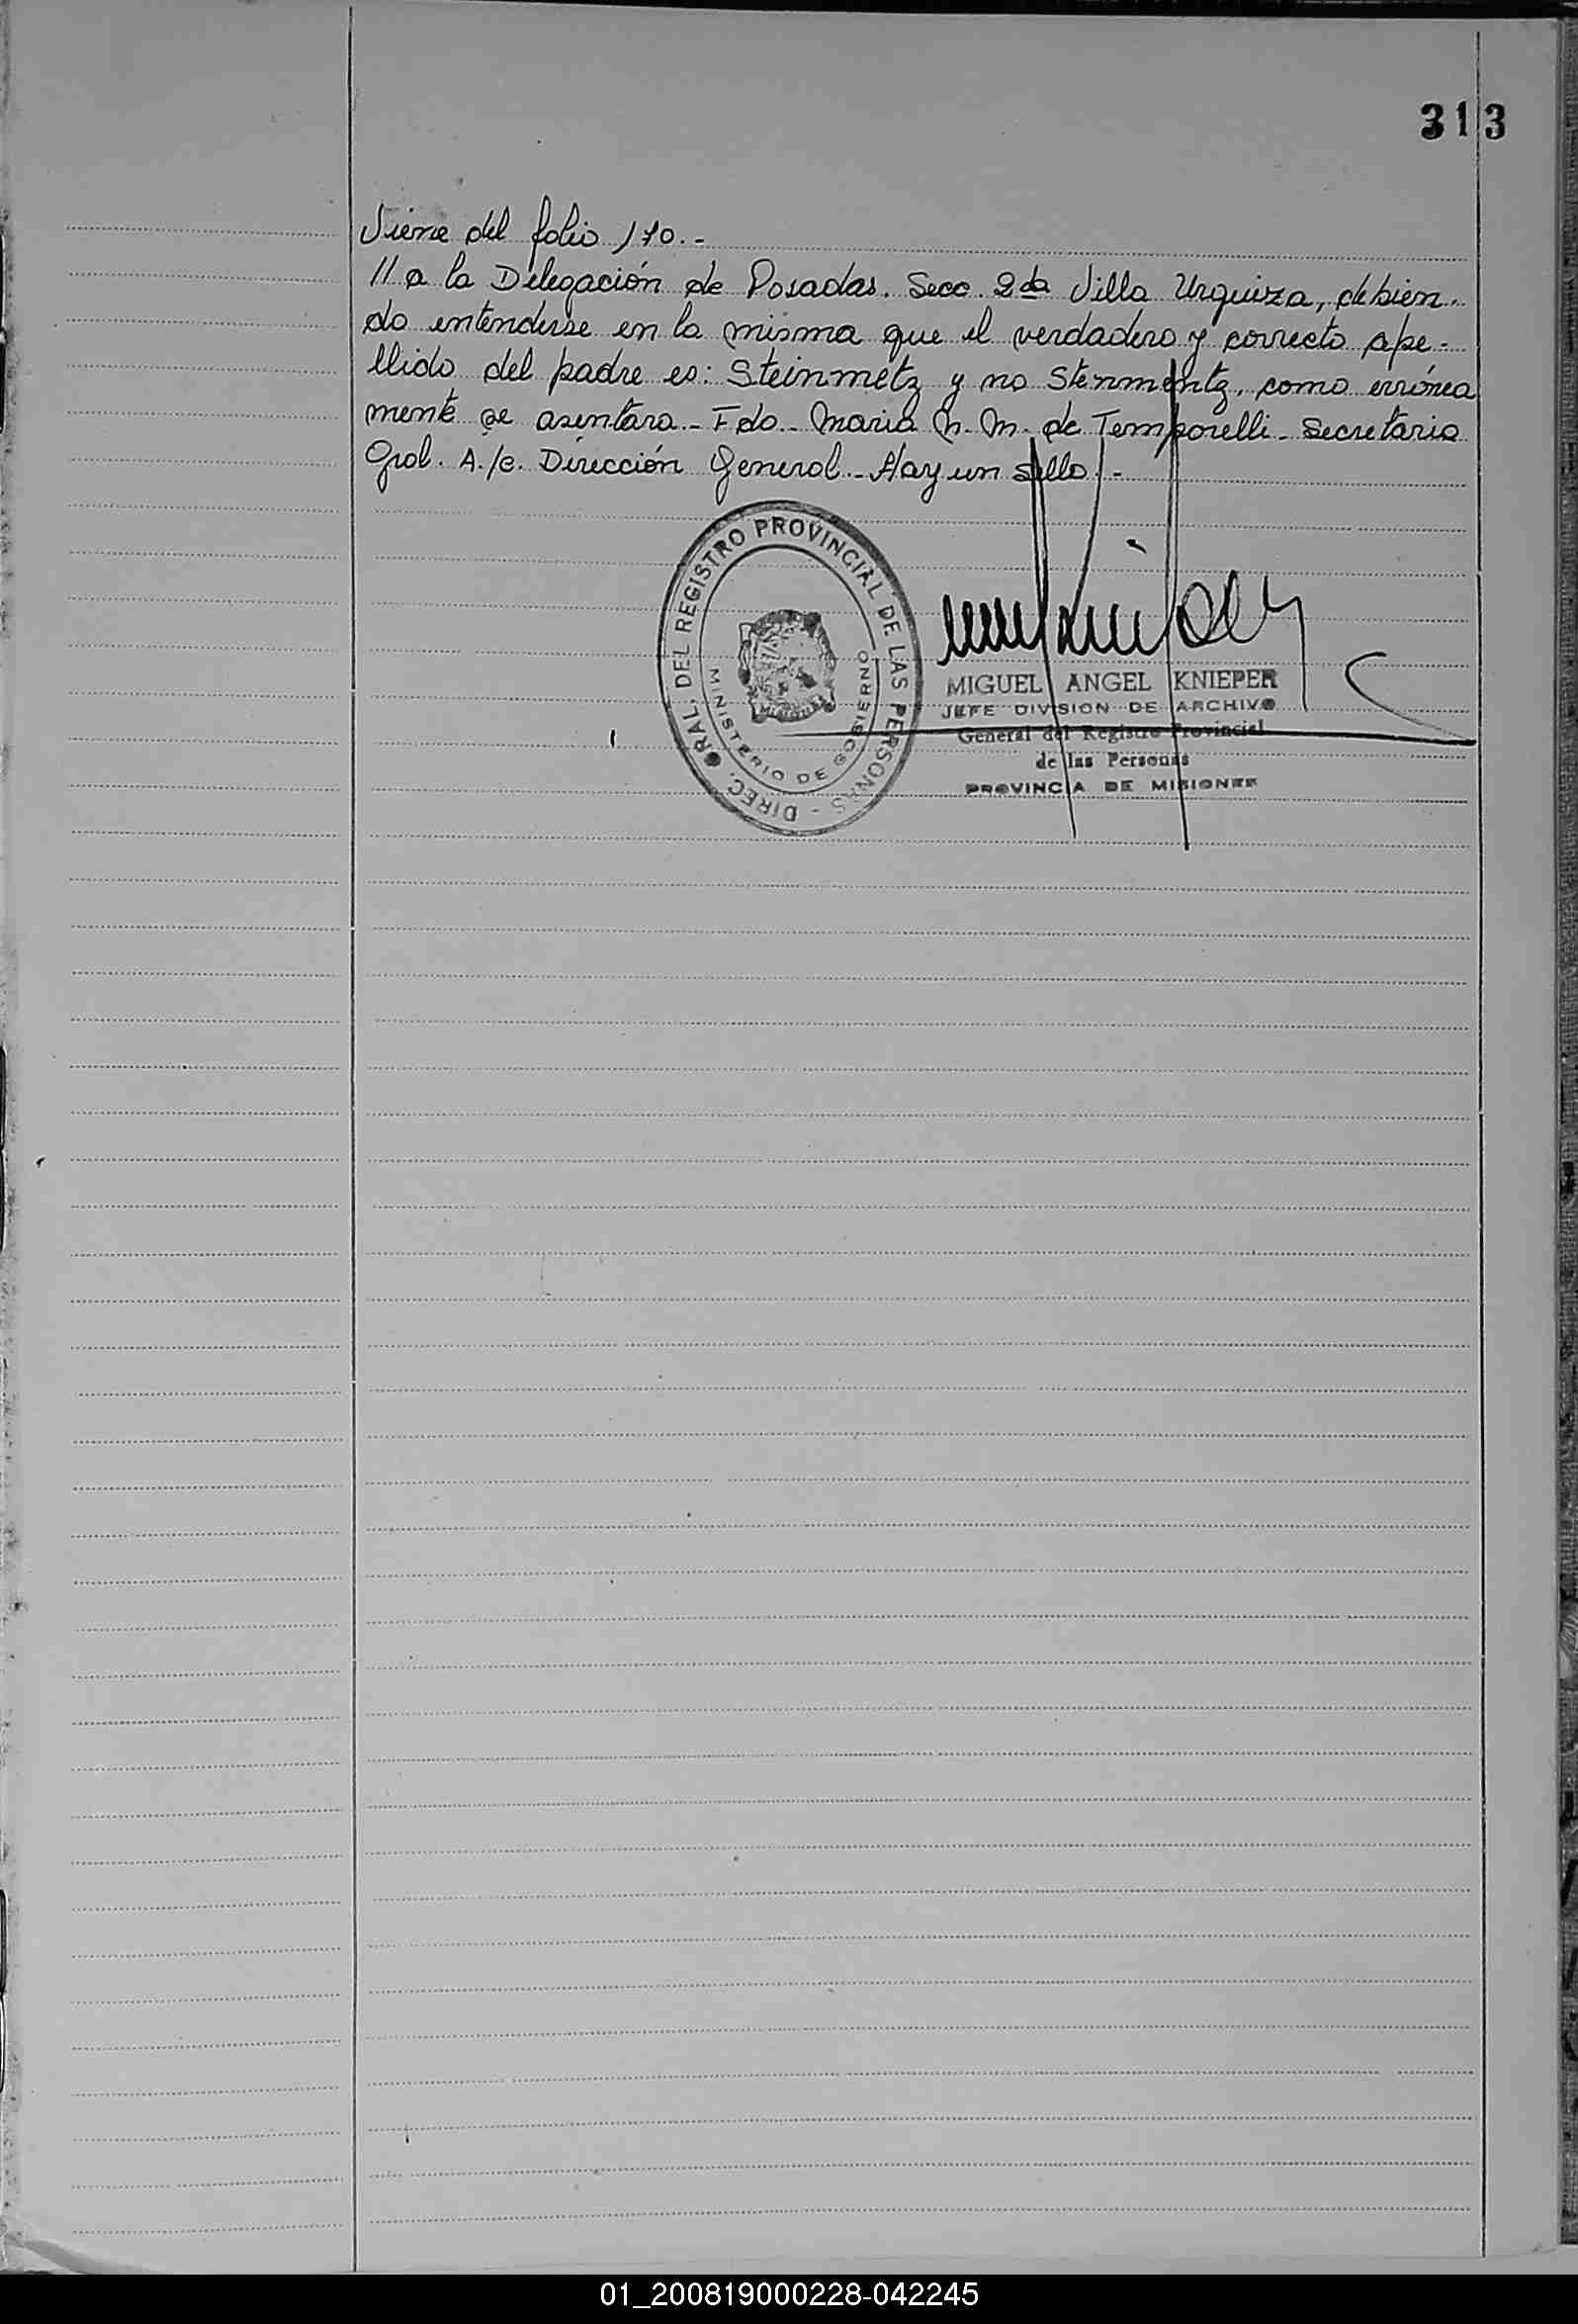 313
Viene del folio 170.-
// a la Delegación de Posadas. Secc. 2da Villa Urquiza, debien-
do entenderse en la misma que el verdadero y correcto ape-
llido del padre es: Steinmetz y no Stenmentz, como errónea
mente se asentara.- Fdo.- Maria M. de Temporelli- Secretaria
Gral. A./c. Dirección General.- Hay un sello.-
DIREC. GRAL. DEL REGISTRO PROVINCIAL DE LAS PERSONAS -
MINISTERIO DE GOBIERNO
MISIONES
MIGUEL ANGEL KNIEPER
JEFE DIVISION DE ARCHIVO
General del Registro Provincial
de las Personas
PROVINCIA DE MISIONES
01_200819000228-042245